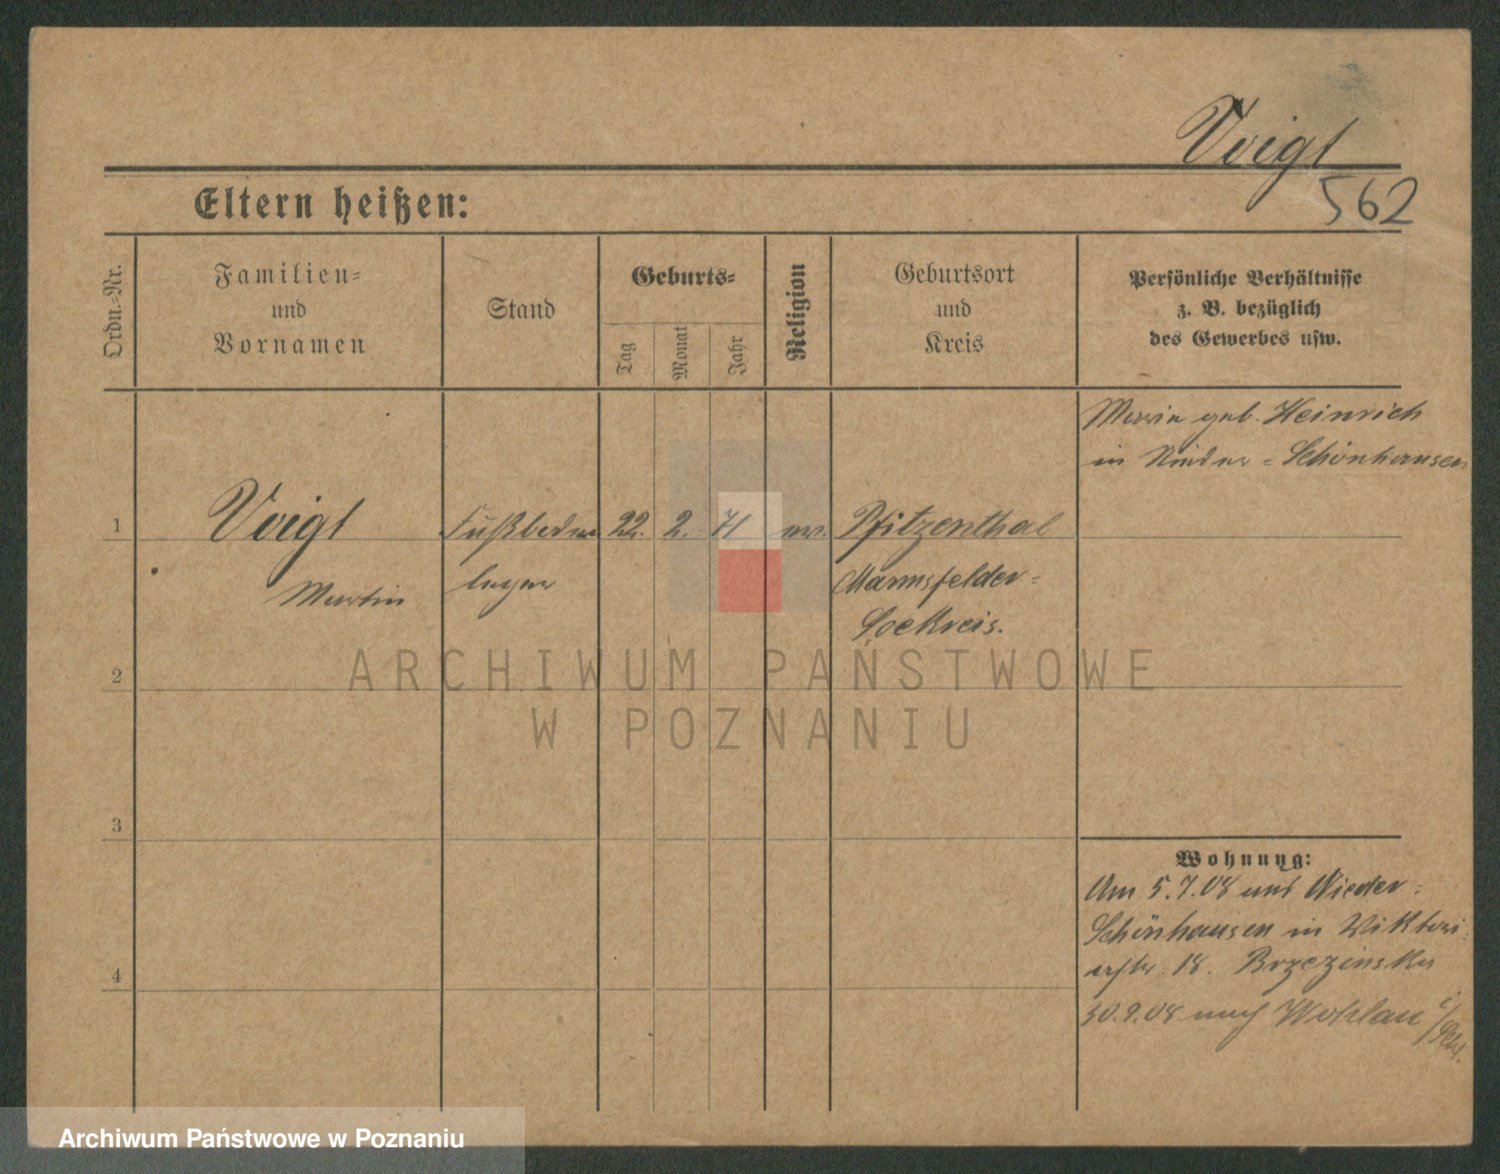 Voigt
562
Eltern heißen:
Ordn.-Nr.
Familien-
und
Vornamen
Stand
Geburts-
Tag
Monat
Jahr
Religion
Geburtsort
und
Kreis
Persönliche Verhältnisse
z. B. bezüglich
des Gewerbes usw.
Maria geb. Heinrich
in Nieder-Schönhausen
1
Voigt
Martin
Fußboden
leger
22. 2. 71
ev.
Pfitzenthal
Mannsfelder-
Seekreis.
2
3
4
Wohnung:
Am 5.7.08 aus Nieder-
Schönhausen in Viktori
astr. 18. Brzezinski
30.9.08 nach Wohlau i/Schl.
ARCHIWUM PAŃSTWOWE
W POZNANIU
Archiwum Państwowe w Poznaniu